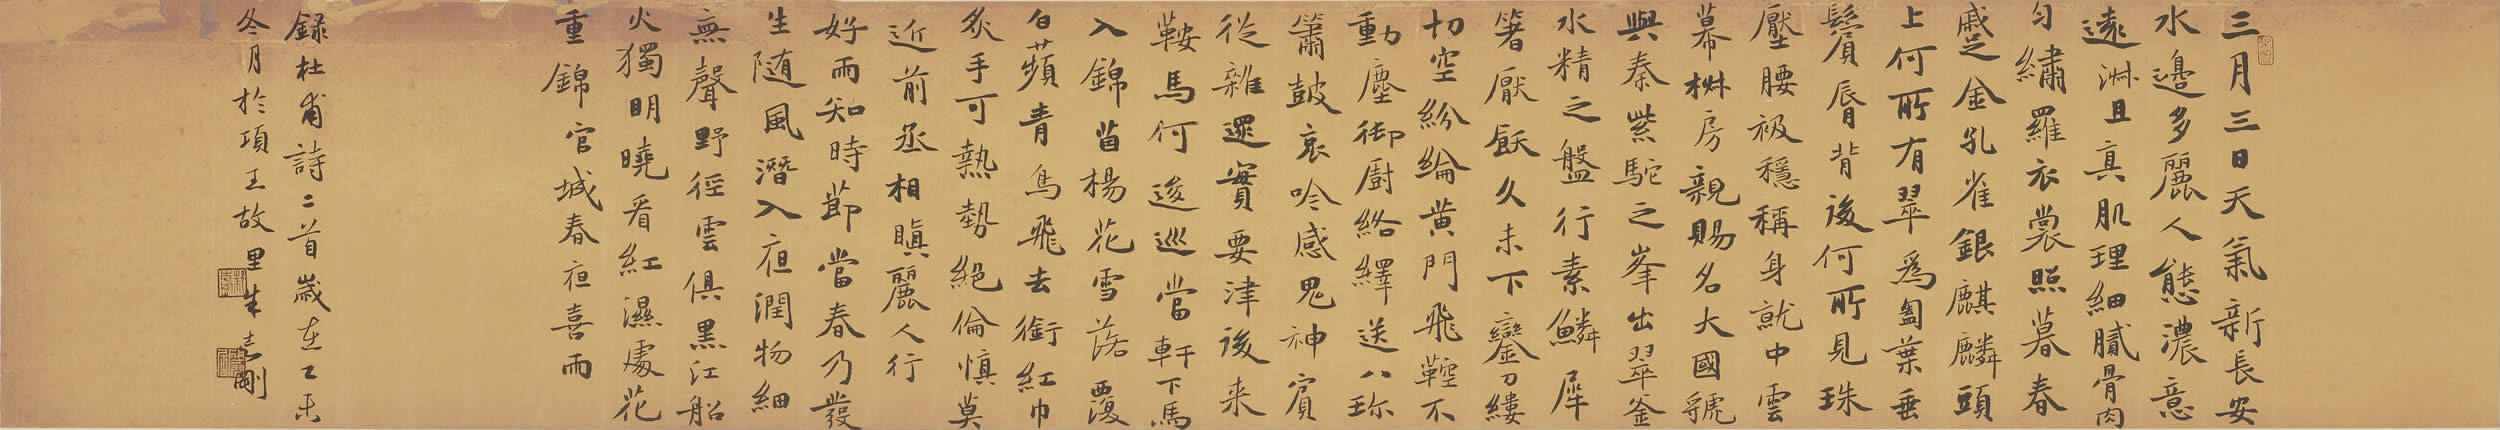 三月三日天氣新長安
水邊多麗人態濃意
遠淑且真肌理細膩骨肉
勻繡羅衣裳照暮春
蹙金孔雀銀麒麟頭
上何所有翠爲匎葉垂
鬢脣背後何所見珠
壓腰衱穩稱身就中雲
幕椒房親賜名大國虢
與秦紫駝之峯出翠釜
水精之盤行素鱗犀
箸厭飫久未下鑾刀縷
切空紛綸黄門飛鞚不
動塵御廚絡繹送八珎
簫鼓哀吟感鬼神賓
從雜遝實要津後来
鞍馬何逡巡當軒下馬
入錦茵楊花雪落覆
白蘋青鳥飛去銜紅巾
炙手可熱勢絕倫慎莫
近前丞相瞋麗人行
好雨知時節當春乃發
生随風潛入夜潤物細
無聲野徑雲俱黑江船
火獨明曉看紅濕處花
重錦官城春夜喜雨
錄杜甫詩二首歲在乙未
冬月於項王故里朱剛